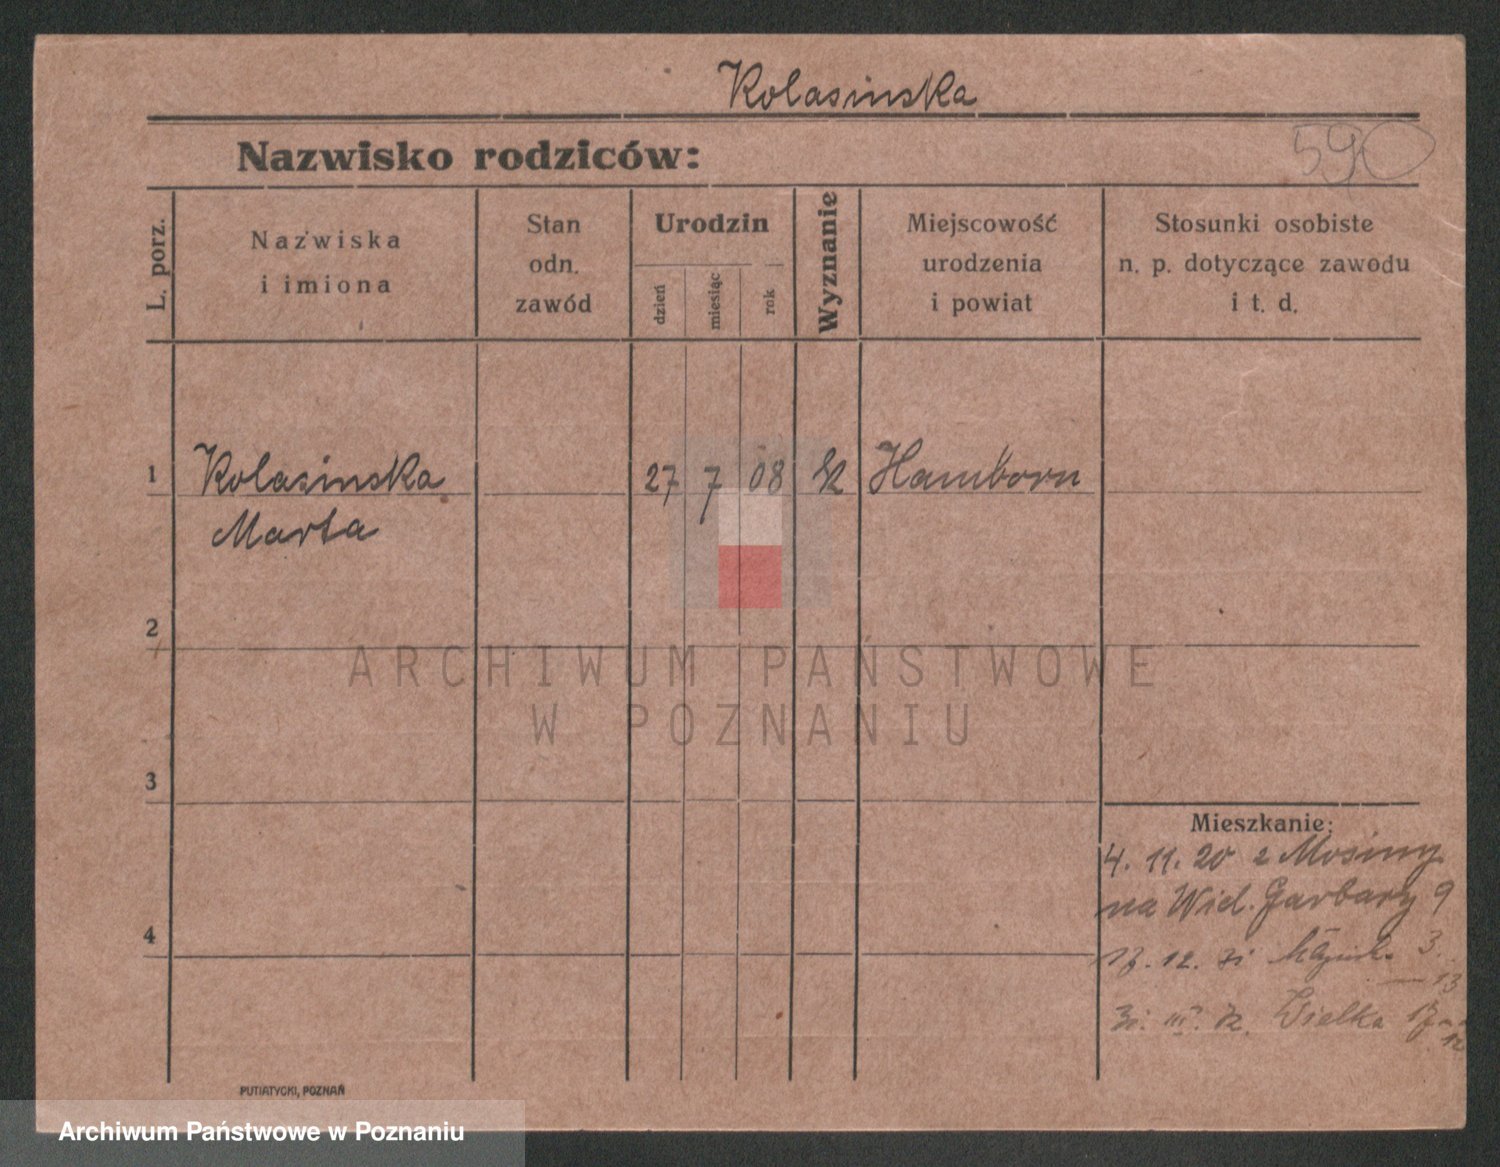 Kolasinska
590
Nazwisko rodziców:
L. porz.
Nazwiska
i imiona
Stan
odn.
zawód
Urodzin
dzień
miesiąc
rok
Wyznanie
Miejscowość
urodzenia
i powiat
Stosunki osobiste
n. p. dotyczące zawodu
i t. d.
1 Kolasinska 27 7 08 Hamborn
Marta
2
ARCHIWUM PAŃSTWOWE
W POZNANIU
3
Mieszkanie:
4. 11. 20 z Mosiny
na Wiel. Garbary 9
4
12. 3.
13
III. Wielka 17
12
PUTIATYCKI, POZNAŃ
Archiwum Państwowe w Poznaniu